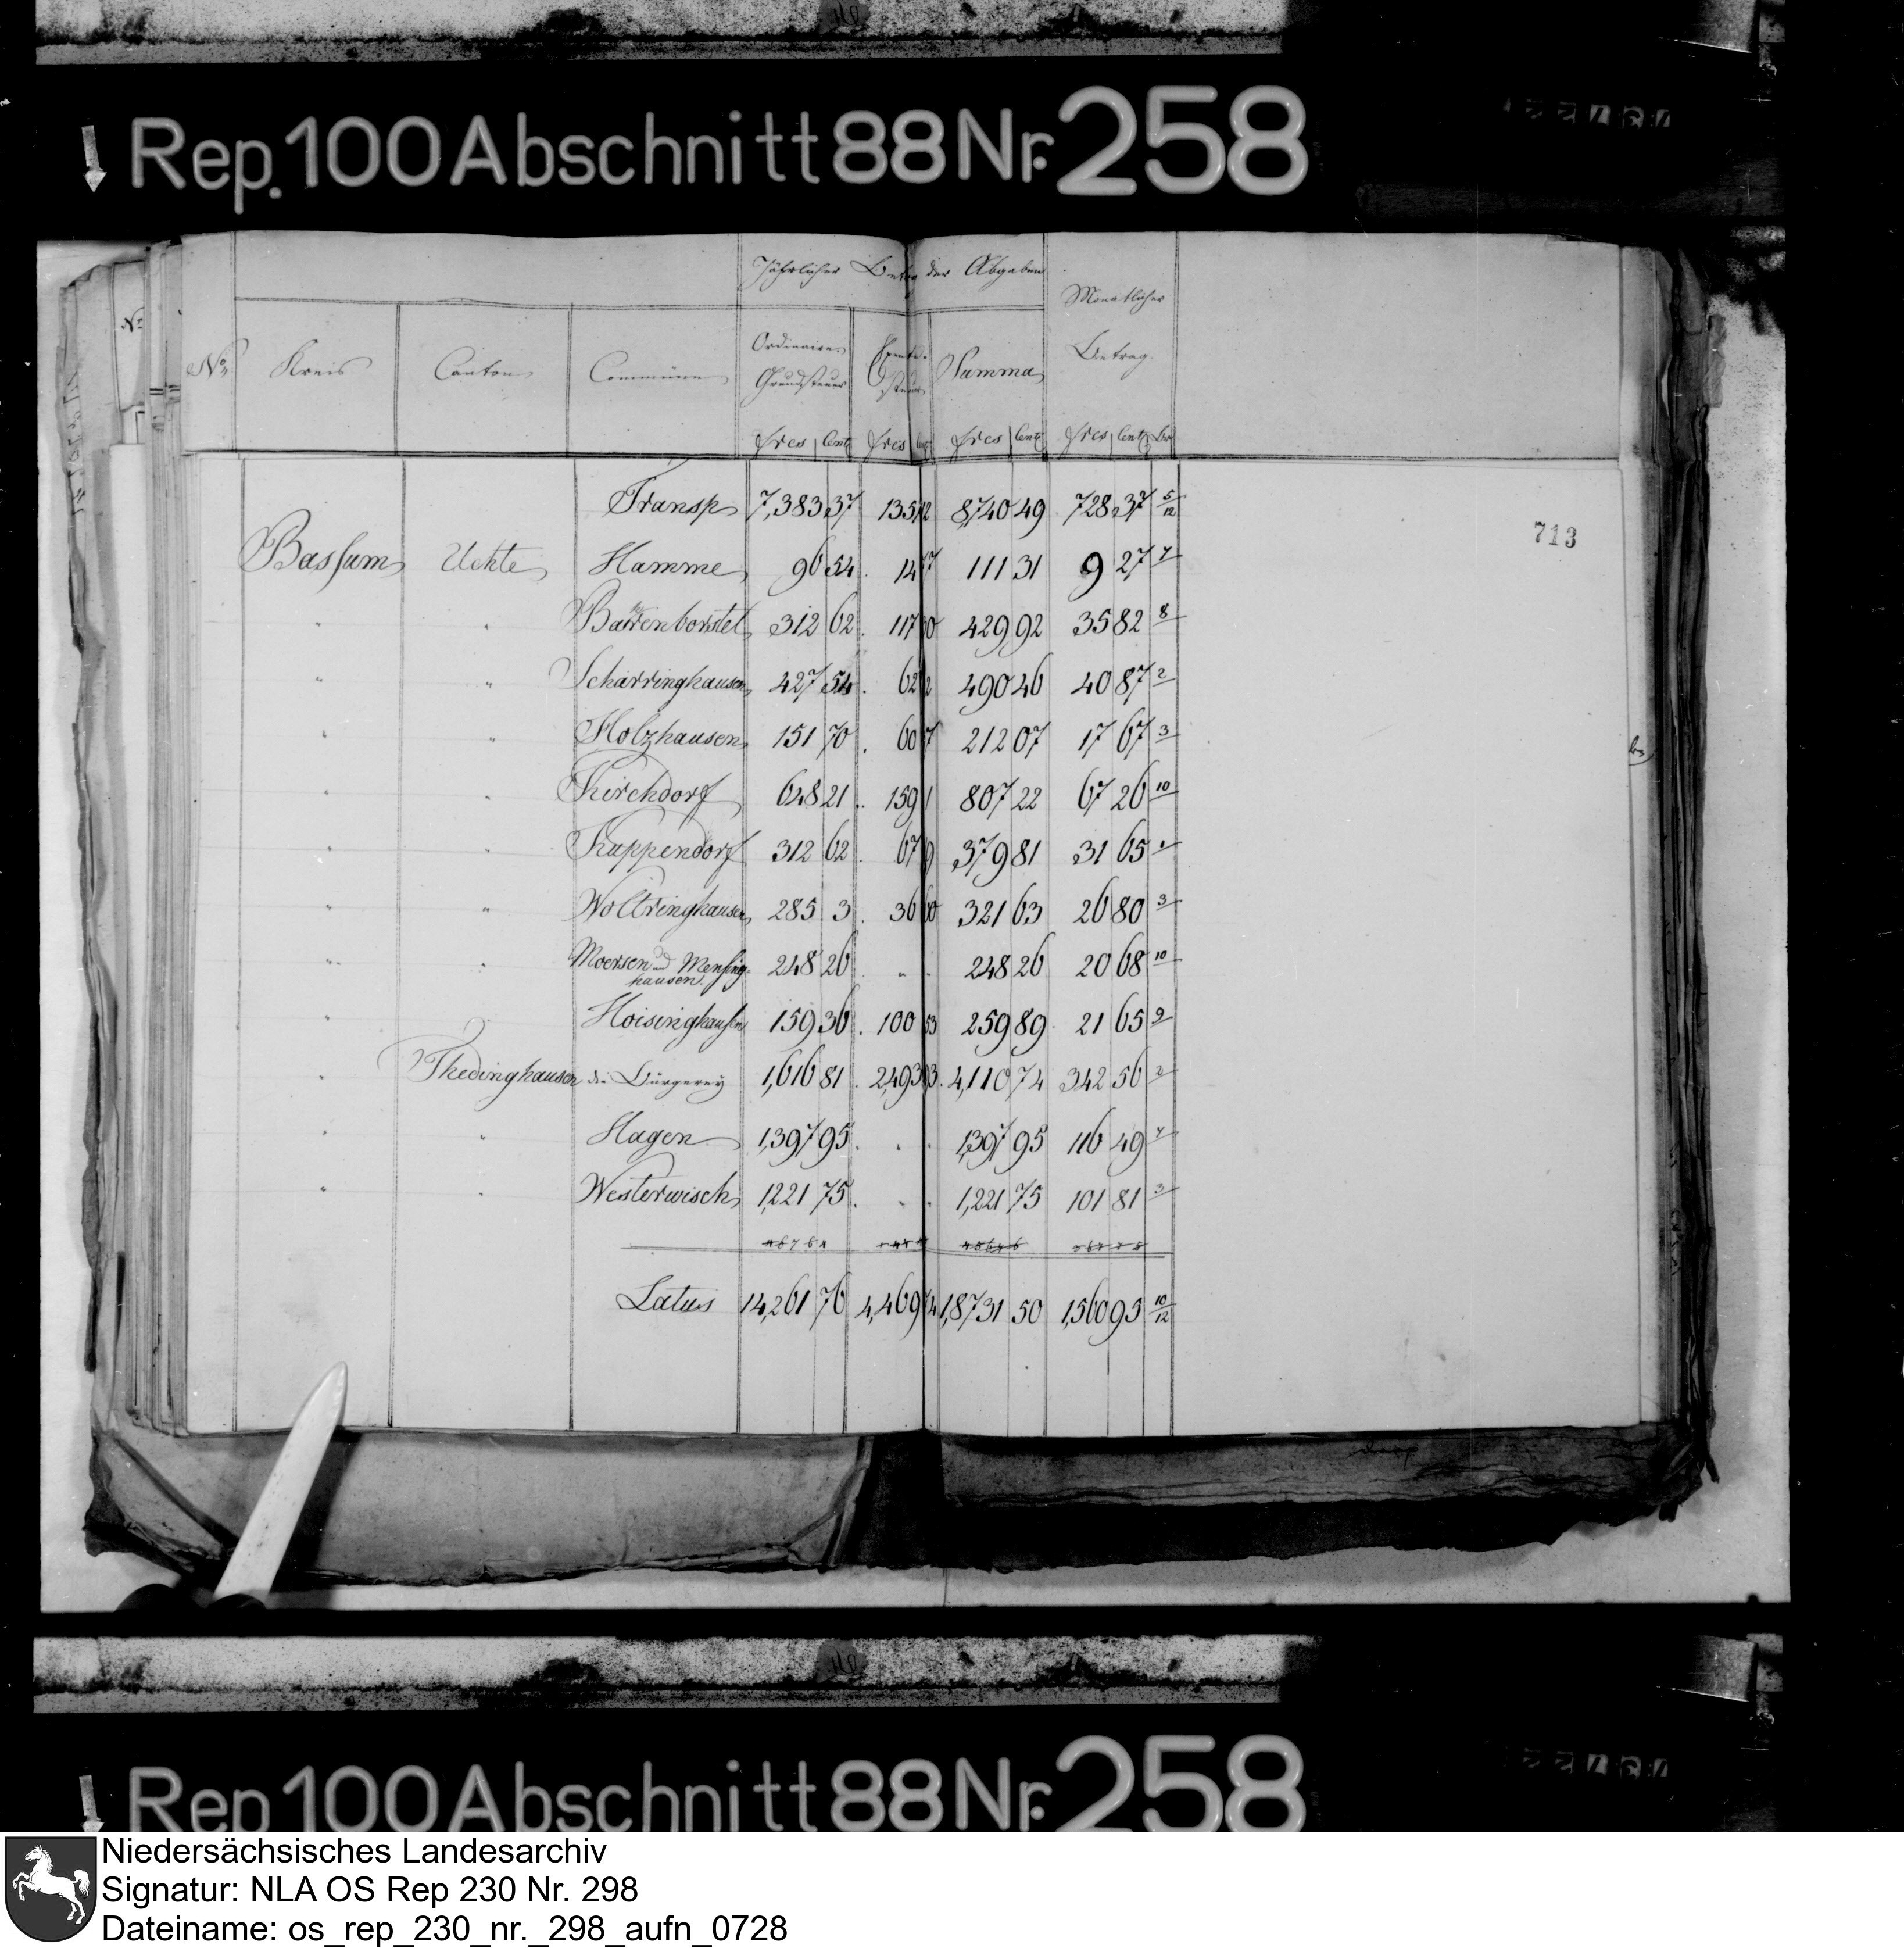 Rep. 100 Abschnitt 88 Nr. 258
Jährlicher Betrag der Abgaben
Monatlicher Betrag.
No. Kreis Canton Commünen Ordinaire Grundsteuer Summa
Frcs Cent Frcs Cent Frcs Cent Frcs Cent
Transp 7,383 37 135 12 8740 49 728 37 5/12
713
Bassum Uchte Hamme 96 54 . 14 7 111 31 9 27 7
" " Barrenborstel 312 62 . 117 30 429 92 35 82 8
" " Scharringhausen 427 54 . 62 2 490 46 40 87 2
" " Holzhausen 151 70 . 60 7 212 07 17 67 3
" " Kirchdorf 648 21 . 159 1 807 22 67 26 10
" " Kuppendorf 312 62 . 67 9 379 81 31 65 1
" " Woltringhausen 285 3 . 36 60 321 63 26 80 3
" " Moersen und Mensing-
hausen 248 26 " . 248 26 20 68 10
" Hoisinghausen 159 36 . 100 53 259 89 21 65 9
" Thedinghausen die Bürgerey 1,616 81 . 2,493 93 . 4,110 74 342 56 2
" " Hagen 1,397 95 . . . 1,397 95 116 49 7
" " Westerwisch 1,221 75 . . . 1,221 75 101 81 3
Latus 14,261 76 4,469 74 18,731 50 1,560 95 10/12
Rep. 100 Abschnitt 88 Nr. 258
Niedersächsisches Landesarchiv
Signatur: NLA OS Rep 230 Nr. 298
Dateiname: os_rep_230_nr._298_aufn_0728